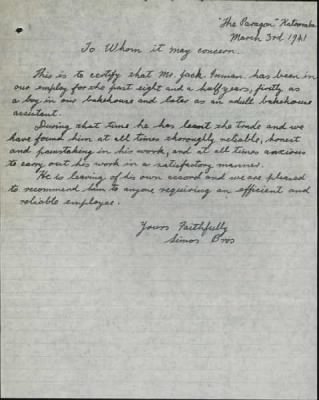 "The Paragon" Katoomba
March 3rd 1941
To Whom it may concern.
This is to certify that Mr. Jack Inman has been in
our employ for the past eight and a half years, firstly as
a boy in our bakehouse and later as an adult bakehouse
assistant.
During that time he has learnt the trade and we
have found him at all times thoroughly reliable, honest
and painstaking in his work, and at all times anxious
to carry out his work in a satisfactory manner.
He is leaving of his own accord and we are pleased
to recommend him to anyone requiring an efficient and
reliable employee.
Yours Faithfully
Simos Bros